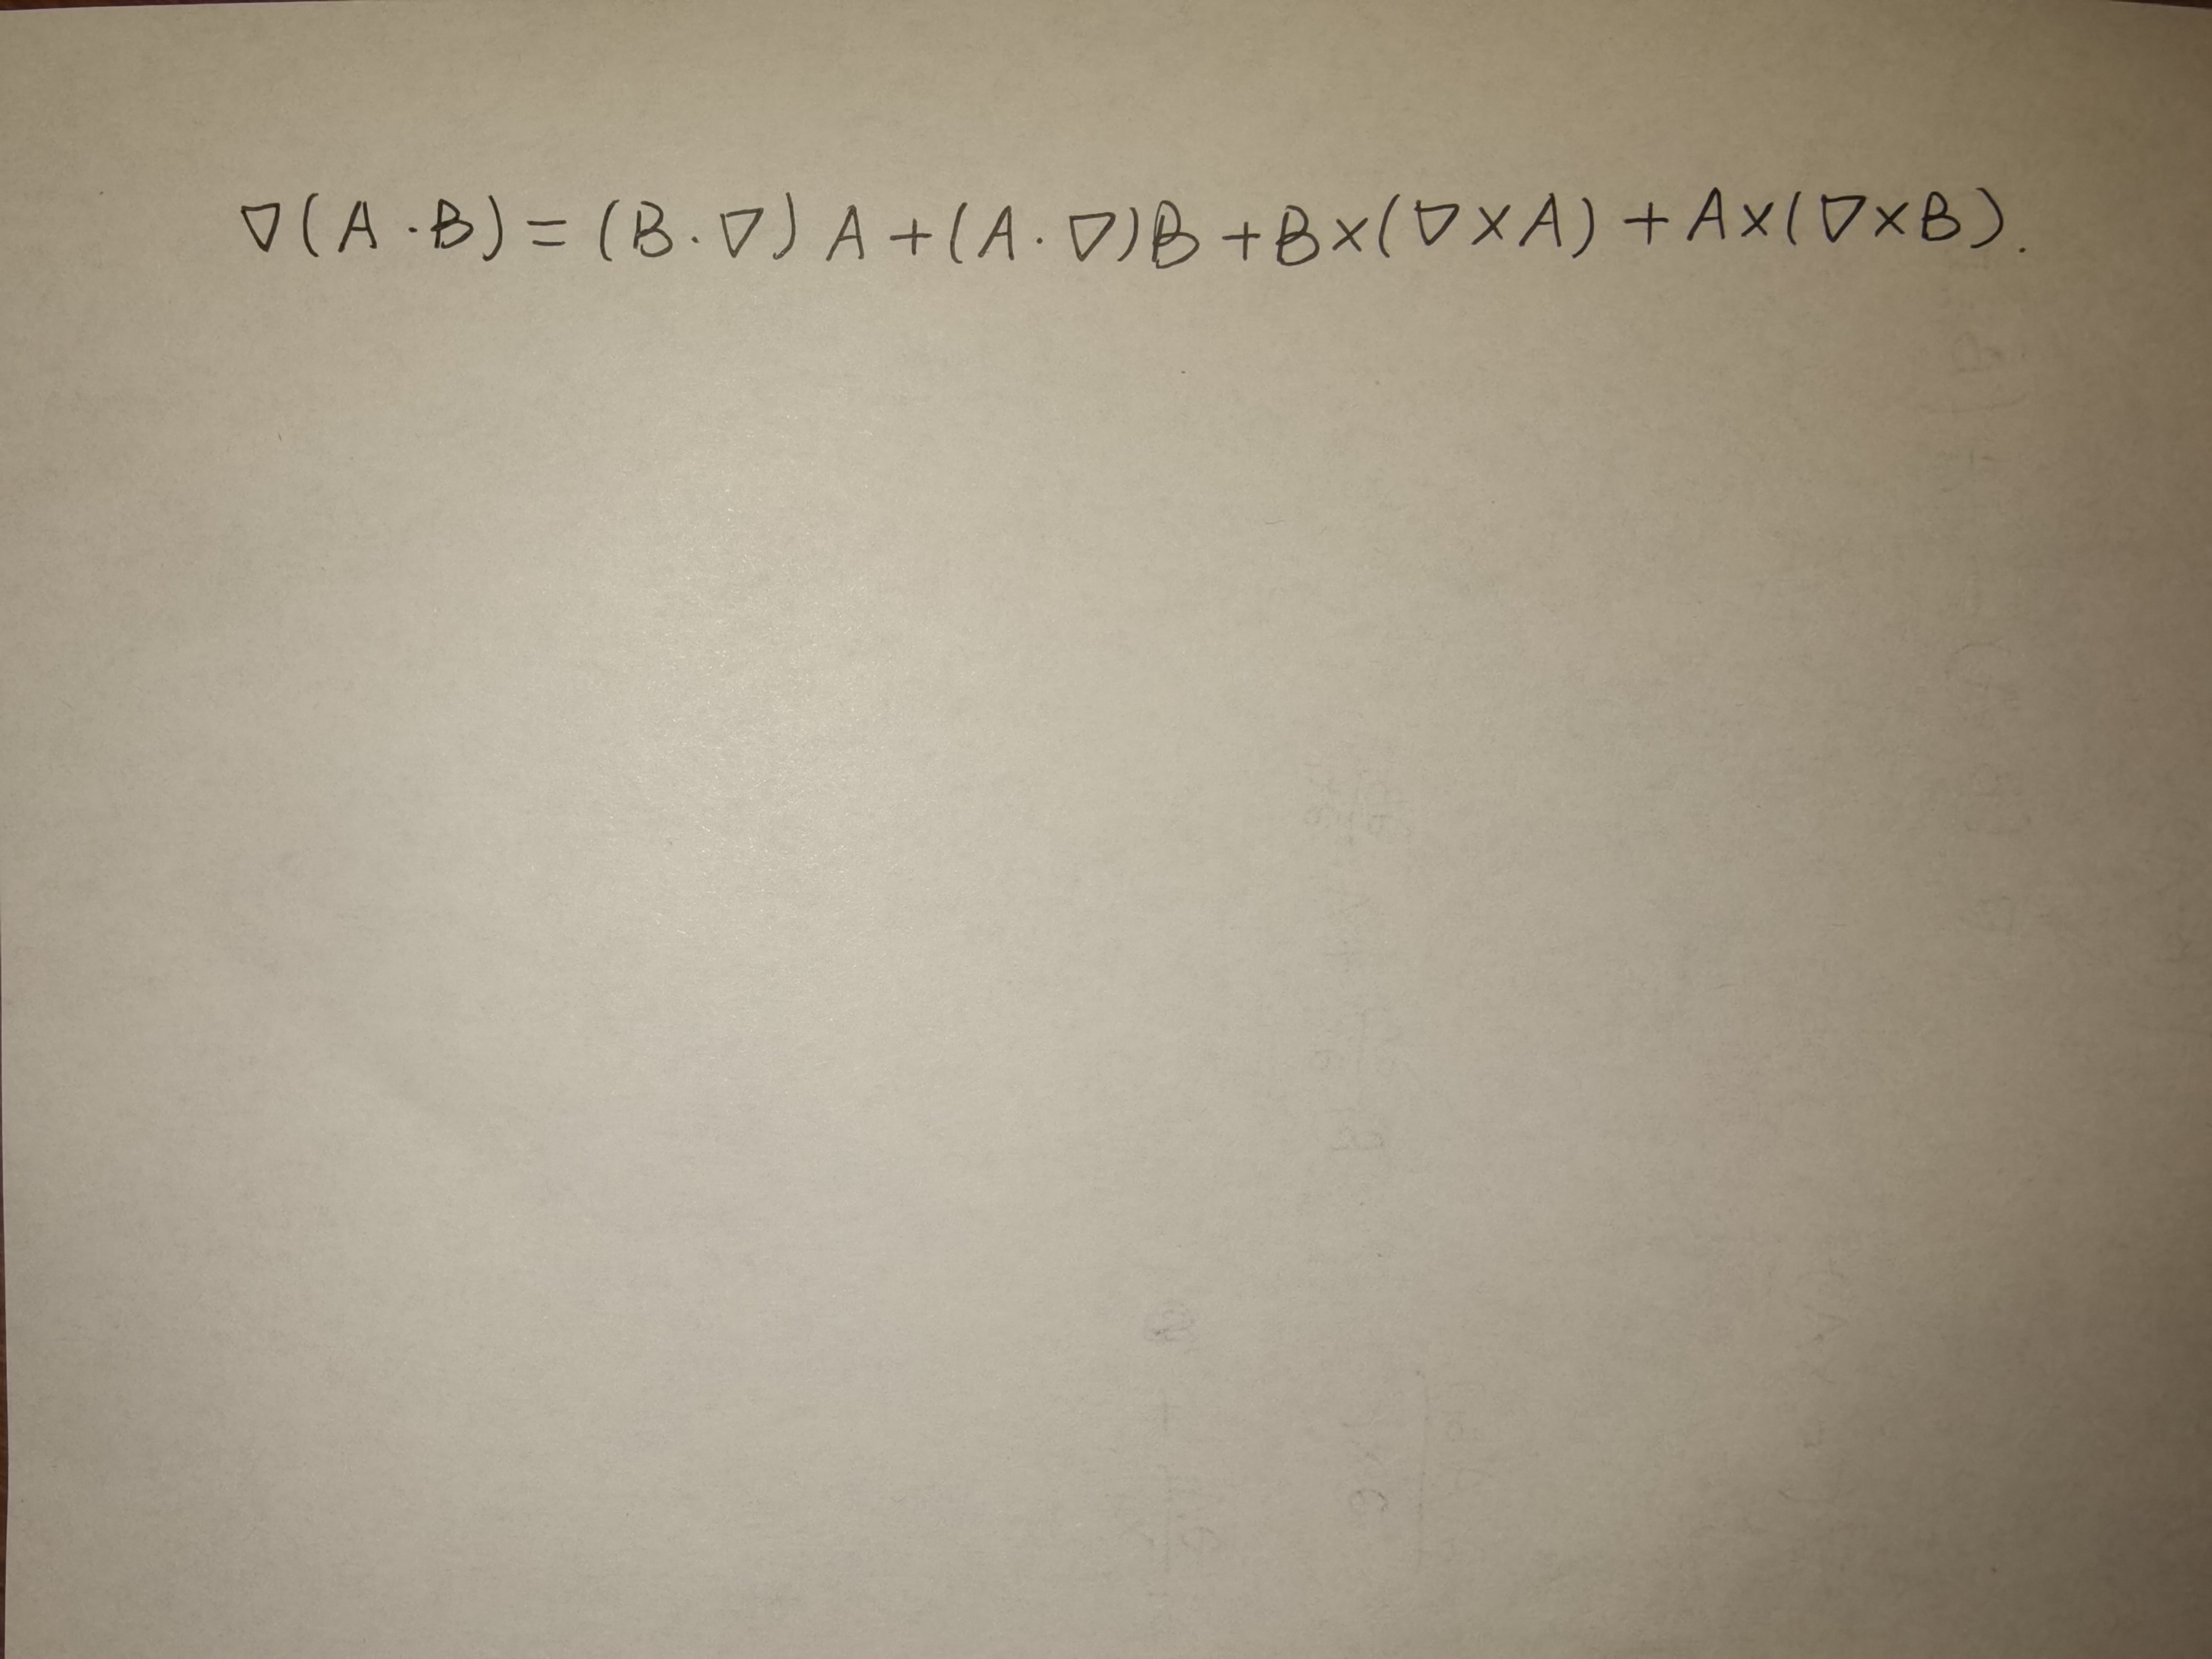 ∇(A·B)=(B·∇)A+(A·∇)B+B×(∇×A)+A×(∇×B).